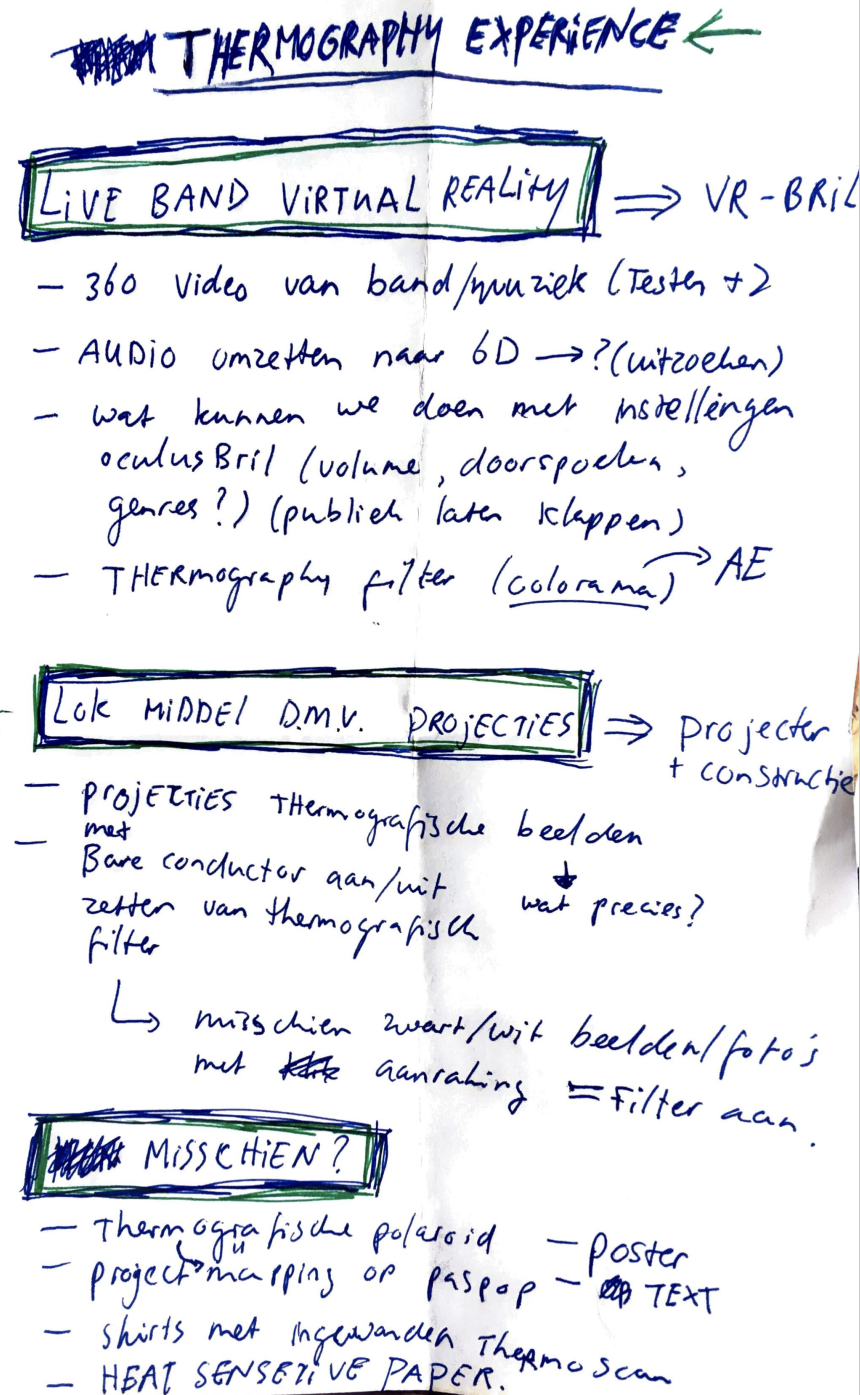 THERMOGRAPHY EXPERIENCE ←
LiVE BAND VIRTUAL REALITY ⇒ VR-BRIL
— 360 Video van band/muziek (Testen +2
— AUDIO omzetten naar 6D →?(uitzoeken)
— wat kunnen we doen met instellingen
oculusBril (volume, doorspoelen,
genres?) (publiek laten klappen)
— THERmography filter (colorama) → AE
Lok MiDDEl D.M.V. PROJECTiES ⇒ projecter
+ constructie
— PROJECTiES THermografische beelden
— met
Bare conductor aan/uit wat precies?
zetten van thermografisch
filter
↳ misschien zwart/wit beelden/foto's
met aanraking = Filter aan.
MiSSCHiEN?
— Thermografische polaroid — poster
— project mapping op paspop — TEXT
— shirts met ingewanden Thermoscan
— HEAT SENSETIVE PAPER.